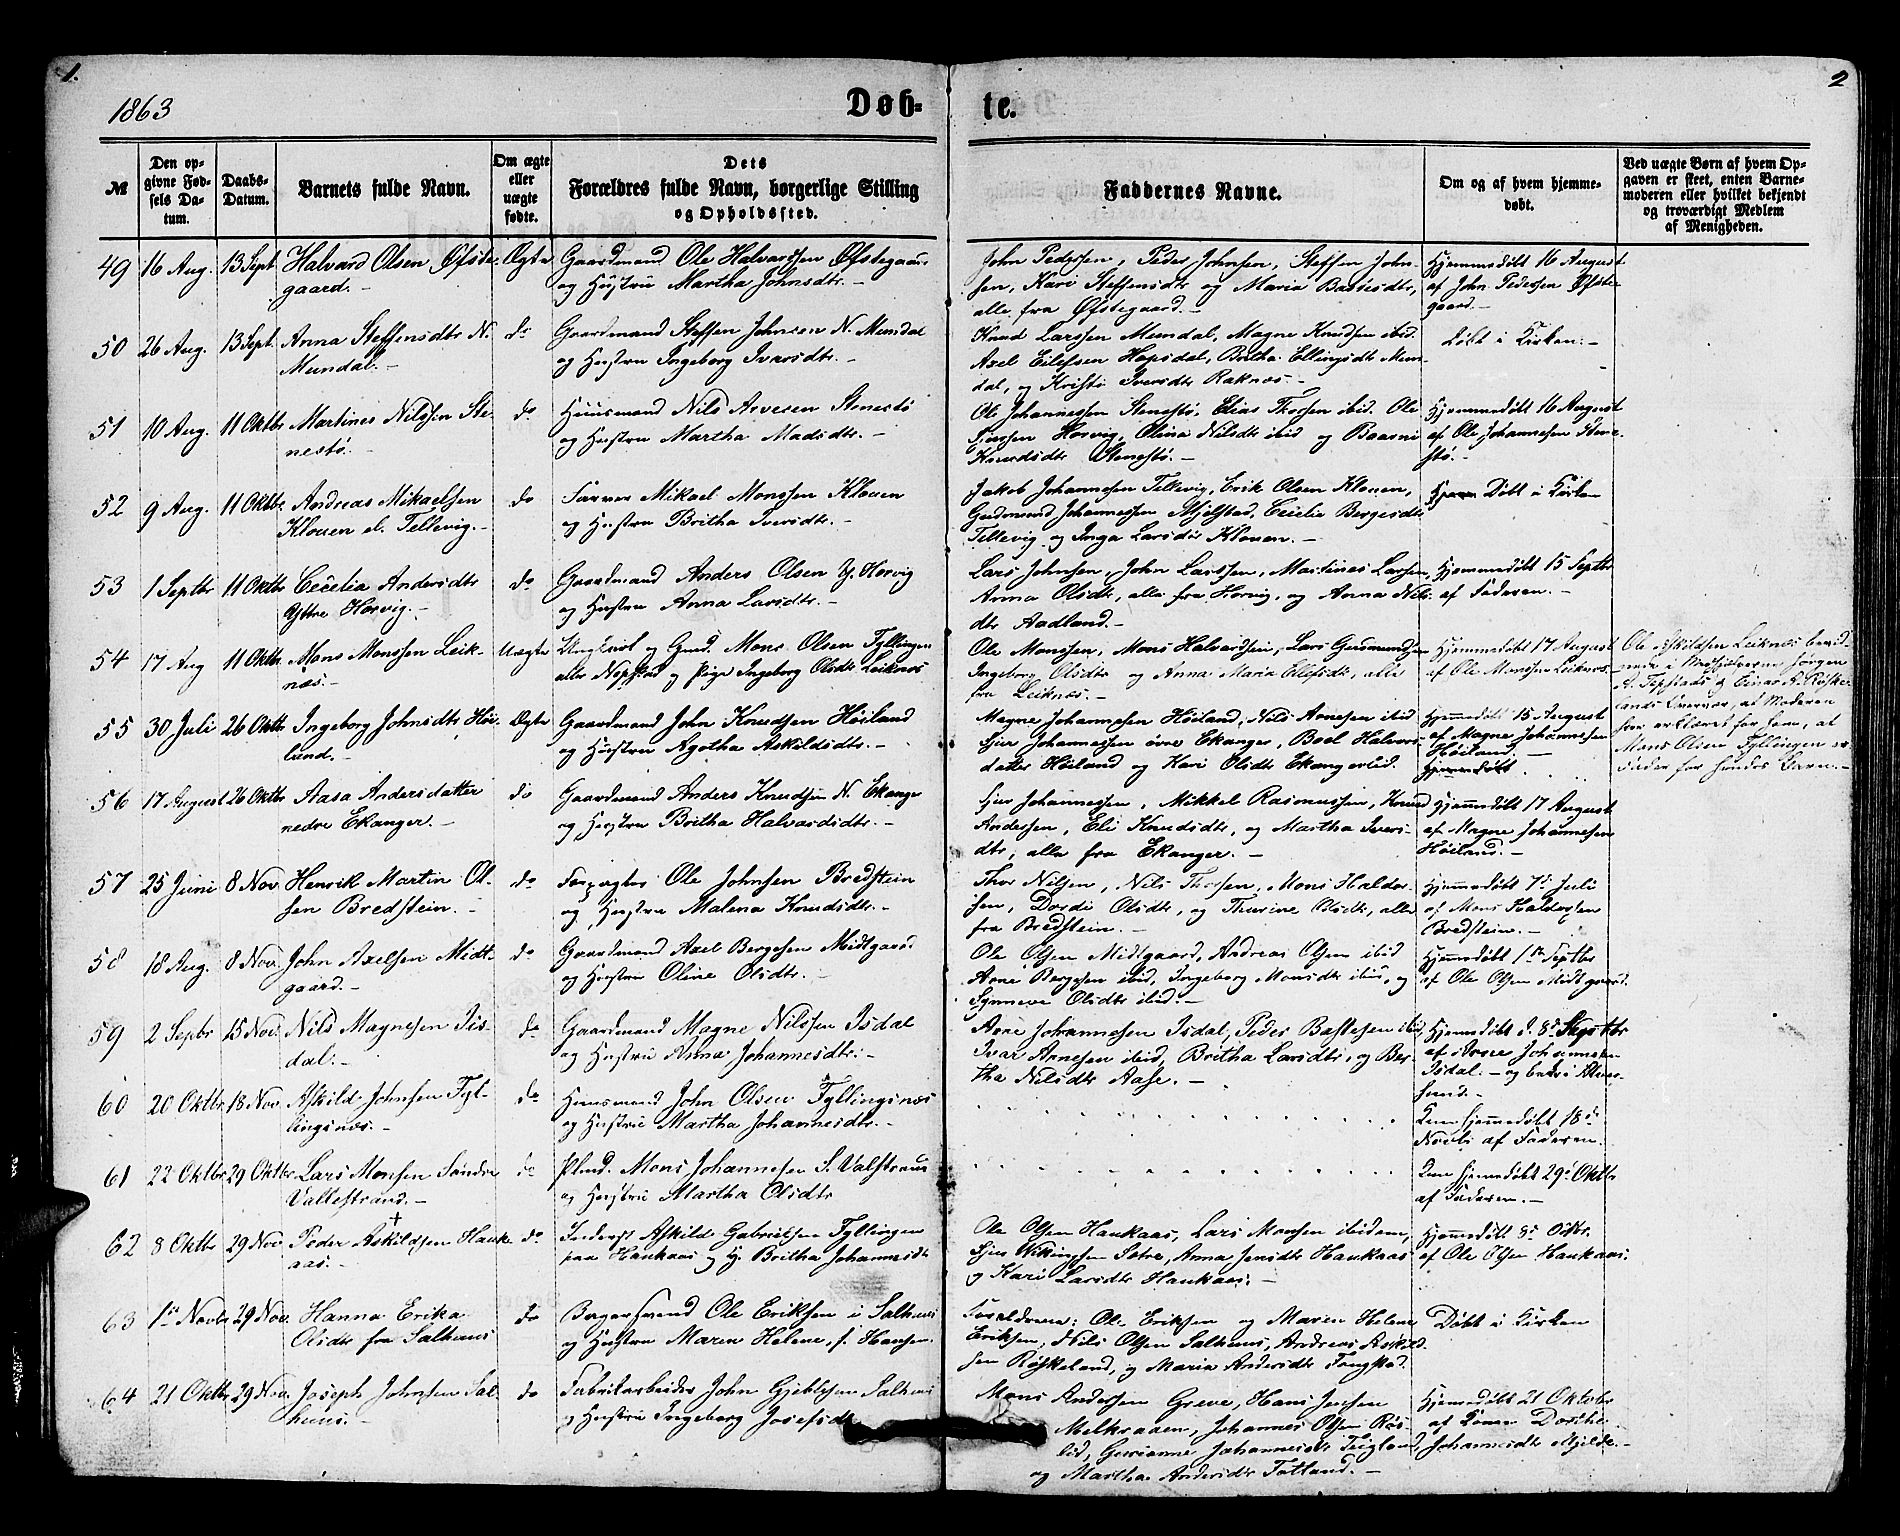 1.
2
1863
Døb-
te.
№
Den op-
givne Fød-
sels Da-
tum.
Daabs-
Datum.
Barnets fulde Navn.
Om ægte
eller
uægte
fødte.
Dets
Forældres fulde Navn, borgerlige Stilling
og Opholdssted.
Faddernes Navne.
Om og af hvem hjemme-
døbt.
Ved uægte Børn af hvem Op-
gaven er skeet, enten Barne-
moderen eller hvilket bekjendt
og troværdigt Medlem
af Menigheden.
49 16 Aug. 13 Sept Halvard Olsen Øfste- Ægte Gaardmand Ole Halvardsen Øfstegaard
gaard.- og Hustru Martha Johnsdtr.-
John Pedersen, Peder Johnsen, Steffen John-
sen, Kari Steffensdtr og Maria Bastesdtr,
alle fra Øfstegaard.-
Hjemmedøbt 16 August
af John Pedersen Øfste-
gaard.-
50 26 Aug. 13 Sept. Anna Steffensdtr N. do Gaardmand Steffen Johnsen N. Mundal
Mundal.- og Hustru Ingeborg Iversdtr.-
Knud Larssen Mundal, Magne Knudsen ibid.
Axel Eilefsen Hopsdal, Britha Ellingsdtr Mun-
dal, og Kristi Iversdtr Raknæs.-
Døbt i Kirken.-
51 10 Aug. 11 Oktbr Martines Nilssen Ste- do Huusmand Nils Arvesen Stenestø
nestø.- og Hustru Martha Madsdtr.-
Ole Johannessen Stenestø, Elias Thorsen ibid. Ole
Sjursen Horvig, Olina Nilsdtr ibid og Baarni
Knudsdtr Stenestø.-
Hjemmedøbt 16 August
af Ole Johannesen Stene-
stø.-
52 9 Aug. 11 Oktbr. Andreas Mikaelsen do Farver Mikael Monssen Klouen
Klouen el. Tellevig.- og Hustru Britha Iversdtr.-
Jakob Johannesen Tellevig, Erik Olsen Klouen,
Gudmund Johannessen Mjelstad, Cecelia Bergesdtr
Tellevig og Inga Larsdtr Klouen.-
Døbt i Kirken
53 1 Septbr 11 Oktbr Cecelia Andersdtr do Gaardmand Anders Olsen Y. Horvig
Yttre Horvig.- og Hustru Anna Larsdtr.-
Lars Johnsen, John Larssen, Martines Larsen,
Anna Olsdtr, alle fra Horvig, og Anna Nils-
dtr Aadland.-
Hjemmedøbt 15 Septbr
af Faderen.-
54 17 Aug 11 Oktbr. Mons Monssen Leik- Uægte Ungkarl og Gmd. Mons Olsen Fyllingen
næs.- eller Nepstad og Pige Ingeborg Olsdtr Leiknæs
Ole Monssen, Mons Halvardsen, Lars Gudmundsen
Ingeborg Olsdtr og Anna Maria Ellefsdtr, alle
fra Leiknæs.-
Hjemmedøbt 17 August
af Ole Monssen Leiknæs.-
Ole Askildsen Leiknæs bevid-
nede i Medhjelperne Jørgen
A. Tepstads & Einar A. Røske-
lands Overvær, at Moderen
har erklæret for ham, at
Mons Olsen Fyllingen er
Fader for hendes Barn.-
55 30 Juli 26 Oktbr Ingeborg Johnsdtr Høi- Ægte Gaardmand John Knudsen Høiland
land.- og Hustru Agotha Askildsdtr.-
Magne Johannesen Høiland, Nils Arnesen ibid
Sjur Johannessen øvre Ekanger, Boel Halvors-
datter Høiland og Kari Olsdtr Ekanger ibid.
Hjemmedøbt 15 August
af Magne Johannesen
Høiland.-
Hjemmedøbt
56 17 August 26 Oktbr Aasa Andersdatter do Gaardmand Anders Knudsen N. Ekange
nedre Ekanger.- og Hustru Britha Halvardsdtr.-
Sjur Johannessen, Mikkel Rasmussen, Knud
Andersen, Eli Knudsdtr, og Martha Ivers-
dtr, alle fra Ekanger.-
Hjemmedøbt 17 August
af Magne Johannesen
Høiland.-
57 25 Juni 8 Nov. Henrik Martin Ol- do Forpagter Ole Johnsen Bredstein
sen Bredstein.- og Hustru Malena Knudsdtr.-
Thor Nilsen, Nils Thorsen, Mons Haldor-
sen, Dordi Olsdtr, og Thurine Olsdtr, alle
fra Bredstein.-
Hjemmedøbt 7de Juli
af Mons Haldorsen
Bredstein.-
58 18 Aug. 8 Nov. John Axelsen Midt- do Gaardmand Axel Bergesen Midtgaard
gaard.- og Hustru Oline Olsdtr.-
Ole Olsen Midtgaard, Andreas Olsen ibid
Arne Bergesen ibid, Ingeborg Monsdtr ibid, og
Synneve Olsdtr ibid.-
Hjemmedøbt 1ste Septbr
af Ole Olsen Midtgaard.
59 2 Septbr 15 Nov. Nils Magnesen Iis- do Gaardmand Magne Nilssen Isdal
dal.- og Hustru Anna Johannesdtr.-
Arne Johannesen Isdal, Peder Bastesen ibid,
Ivar Arnesen ibid, Britha Larsdtr, og Ber-
tha Nilsdtr Aase.-
Hjemmedøbt d. 8de Septbr
af Arne Johannesen
Isdal.-
60 20 Oktbr. 18 Nov. Askild Johnsen Fyl- do Huusmand John Olsen Fyllingsnæs
lingsnæs.- og Hustru Martha Johannesdtr.-
Kun hjemmedøbt 18de
Novbr af Faderen.
61 22 Oktbr 29 Oktbr. Lars Monsen Søndre do Plmd. Mons Johannesen S. Valestrand
Vallestrand.- og Hustru Martha Olsdtr
Kun hjemmedøbt 29de Oktbr
af Faderen.-
62 8 Oktbr 29 Nov. Peder Askildsen Hauk- do Inderst Askild Gabrielsen Fyllingen
aas.- paa Haukaas og H. Britha Johannesdtr
Ole Olsen Haukaas, Lars Monsen ibidem,
Sjur Vikingsen Sætre, Anna Jensdtr Haukaas
og Kari Larsdtr Haukaas.-
Hjemmedøbt 8de Oktbr.
af Ole Olsen Haukaas.
63 1ste Novbr 29 Nov. Hanna Erika do Borgersvend Ole Eriksen i Salhuus
Olsdtr fra Salhuus og Hustru Maren Helene, f. Hansen.
Forældrene: Ole Eriksen og Maren Helene
Eriksen, Nils Olsen Salhuus, Andreas Askild-
sen Røskeland, og Maria Andersdtr Tangstad.
Døbt i Kirken
64 21 Oktbr 29 Nov. Joseph Johnsen Sal- do Fabrikarbeider John Gjeblesen Salhuus
huus.- og Hustru Ingeborg Josefsdtr
Mons Andersen Greve, Hans Jensen
Melkraaen, Johannes Olsen Røs-
lid, Gurianne Johannesdtr Teigland,
og Martha Andersdtr Totland.-
Hjemmedøbt 21 Oktober
af Konen Dorthe
Johannesdtr Mjelde.-